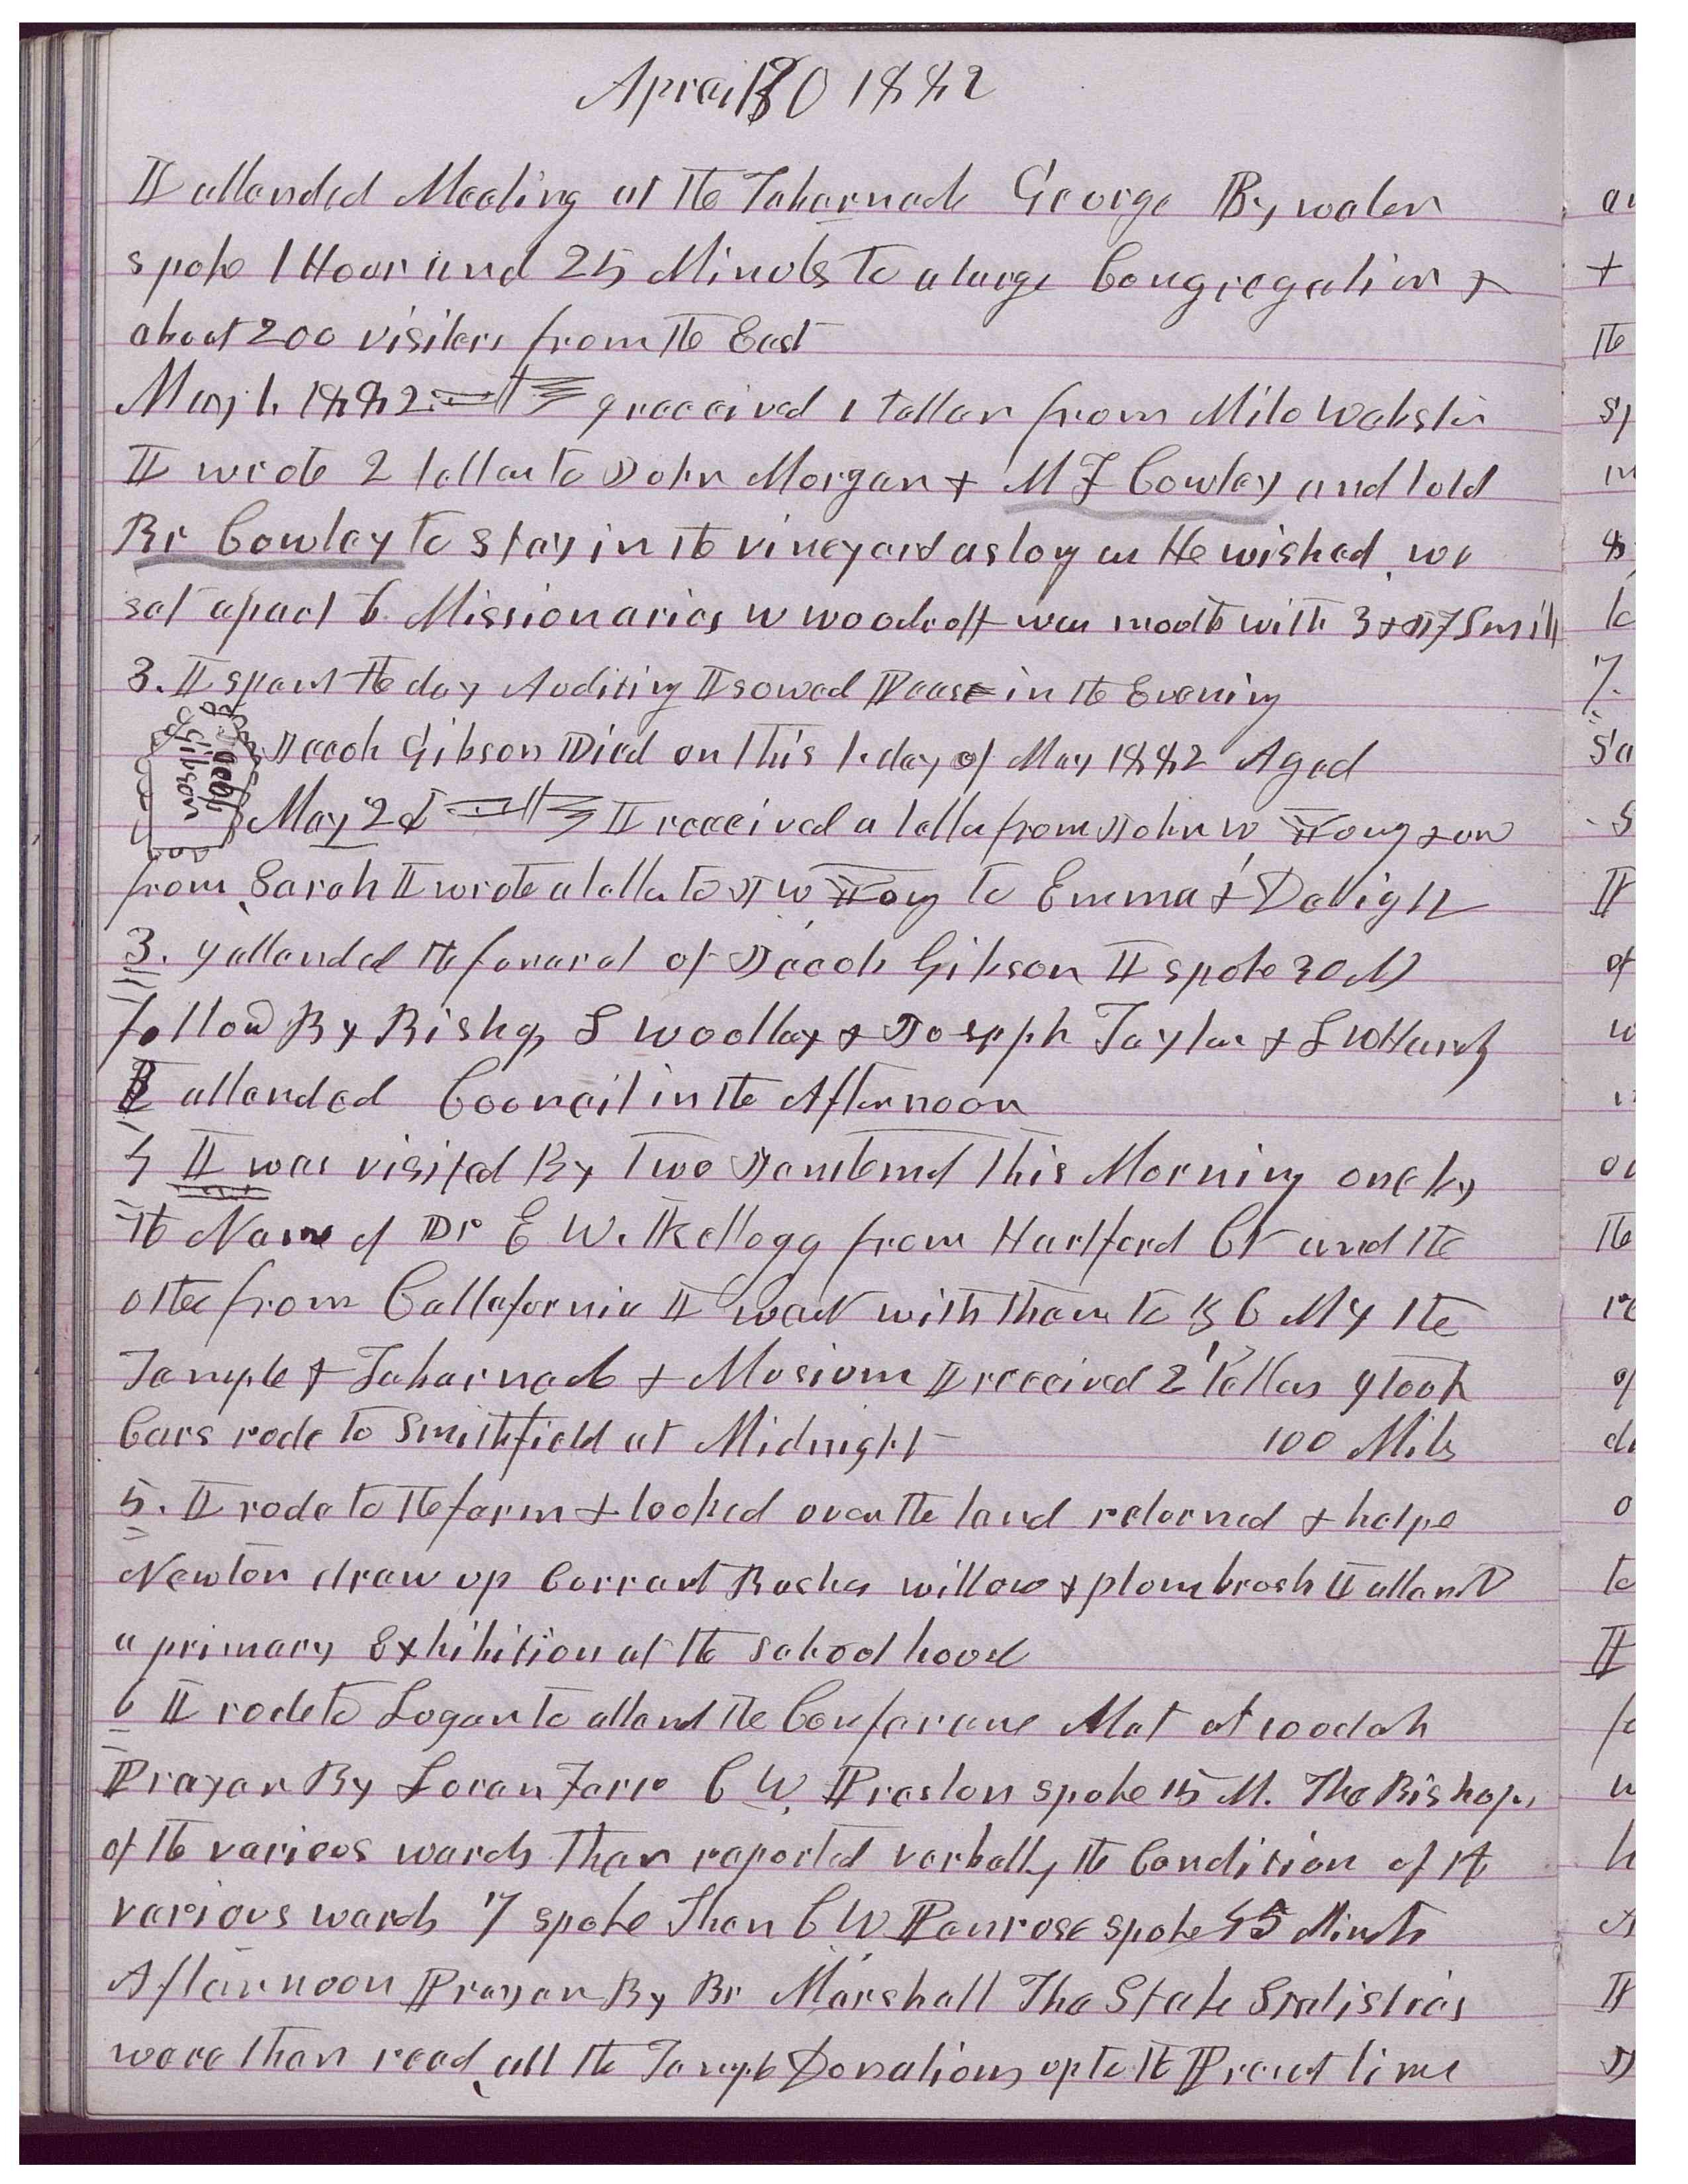 Apreil 30 1882
I attended Meeting at the Tabernacle George Bywater
spoke 1 Hour and 25 Minuts to a large Congregation &
about 200 visiters from the East
May 1. 1882 I received 1 letter from Milo Webster
I wrote 2 letters to John Morgan & M F Cowley and told
Br Cowley to stay in the vineyard as long as He wished we
set apart 6 Missionaries W Woodruff was mouth with 3 & J F Smith
3. I spent the day Auditing I sowed Pease in the Evening
Jacob Gibson
Jacob Gibson Died on this 1. day of May 1882 Aged
May 2d I received a letter from John W Young & one
from Sarah I wrote a letter to J W Young to Emma &
3. I attended the funeral of Jacob Gibson I spoke 30 M
follow By Bishop S Woolley & Joseph Taylor & L W Hardy
I attended Council in the Afternoon
4 I was visited By Two Jentlemen this Morning one by
the Name of Dr E W. Kellogg from Hartford Ct and the
other from Callafornia I went with them to Z C M I the
Temple & Tabernacle & Museum I received 2 letters I took
Cars rode to Smithfield at Midnight 100 Miles
5. I rode to the farm & looked over the land returned & helpe
Newton draw up Currant Bushes willow & plumbrush I attend
a primary Exhibition at the school house
6 I rode to Logan to attend the Conference Met at 10 oclok
Prayer By Loren Farr C W. Preston spoke 15 M. The Bishops
of the various wards then reported verbally the Condition of the
various wards 7 spoke Then C W Penrose spoke 45 Minuts
Afternoon Prayer By Br Marshall The Stake Statisticas
were then read all the Temple Donations up to the Present time